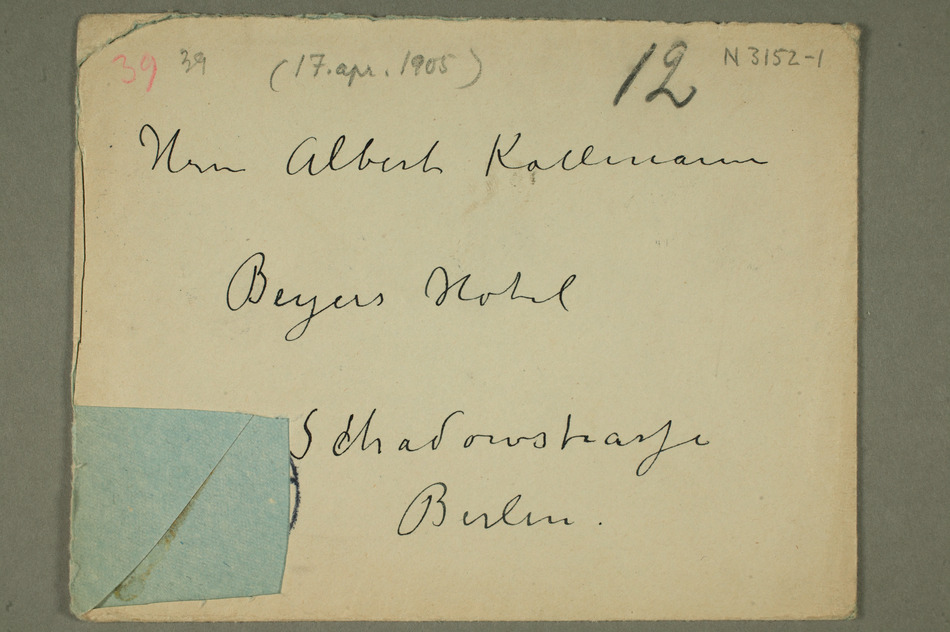 39 39 (17. apr. 1905) 12 N 3152-1
Herrn Albert Kollmann
Beyers Hotel
Schadowstrasse
Berlin.